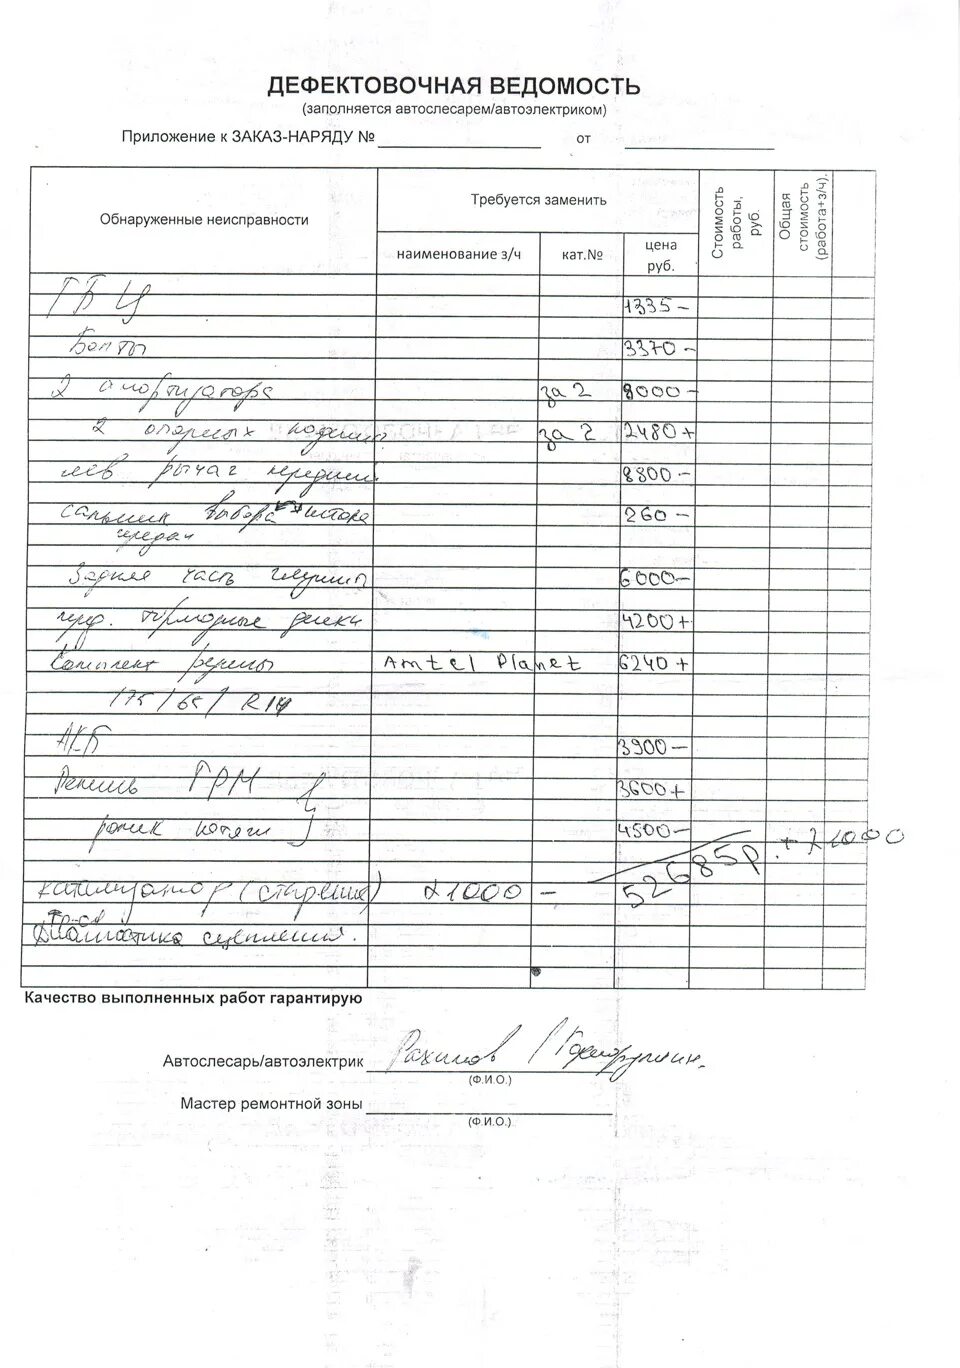 ДЕФЕКТОВОЧНАЯ ВЕДОМОСТЬ
(заполняется автослесарем/автоэлектриком)
Приложение к ЗАКАЗ-НАРЯДУ № от
Обнаруженные неисправности
Требуется заменить
наименование з/ч
кат.№
цена руб.
Стоимость работы, руб.
Общая стоимость (работа+з/ч).
ГБЦ 1335-
Болты 3370-
2 амортизатора за 2 8000-
2 опорных за 2 2480+
лев рычаг передний 8800-
сальник выбора штока 260-
передач
Задняя часть 6000-
пред. тормозные диски 4200+
Комплект резины Amtel Planet 6240+
175/65/R14
АКБ 3900-
Ремень ГРМ 3600+
ролик 4500-
52685р. + 21000
катализатор 21000 -
Диагностика сцепления.
Качество выполненных работ гарантирую
Автослесарь/автоэлектрик Рахимов
(Ф.И.О.)
Мастер ремонтной зоны
(Ф.И.О.)